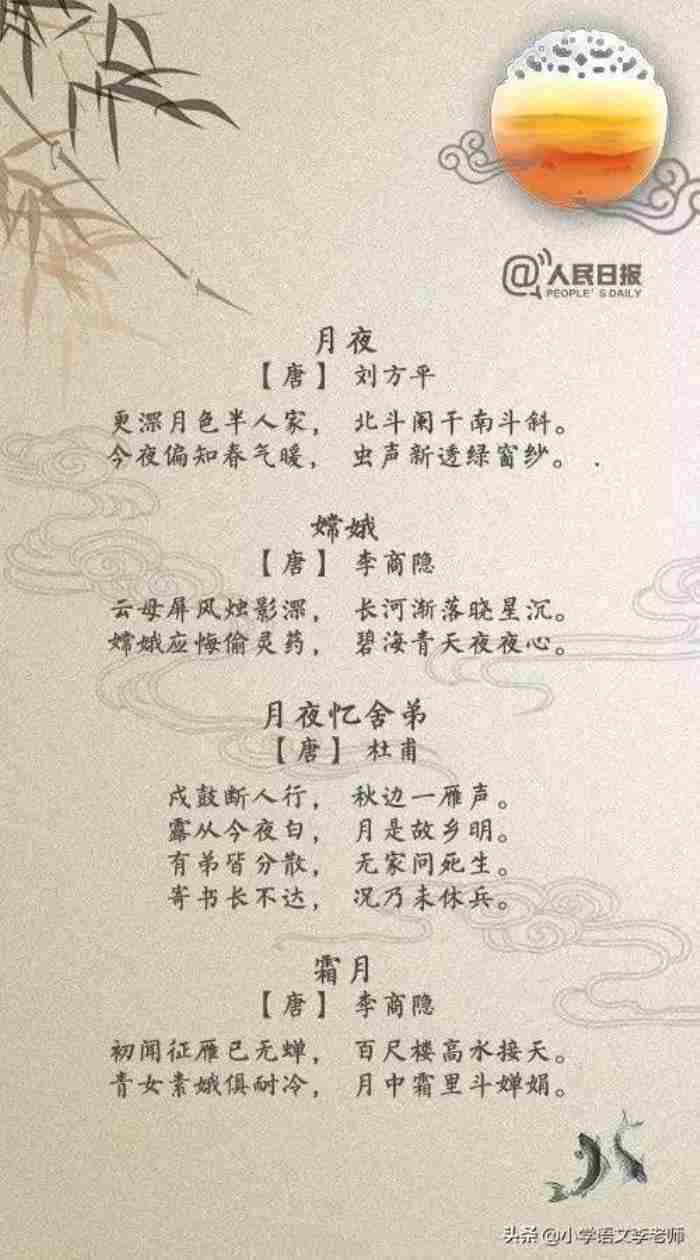 @人民日报
PEOPLE'S DAILY
月夜
【唐】 刘方平
更深月色半人家， 北斗阑干南斗斜。
今夜偏知春气暖， 虫声新透绿窗纱。 .
嫦娥
【唐】 李商隐
云母屏风烛影深， 长河渐落晓星沉。
嫦娥应悔偷灵药， 碧海青天夜夜心。
月夜忆舍弟
【唐】 杜甫
戍鼓断人行， 秋边一雁声。
露从今夜白， 月是故乡明。
有弟皆分散， 无家问死生。
寄书长不达， 况乃未休兵。
霜月
【唐】 李商隐
初闻征雁已无蝉， 百尺楼高水接天。
青女素娥俱耐冷， 月中霜里斗婵娟。
头条 @小学语文李老师